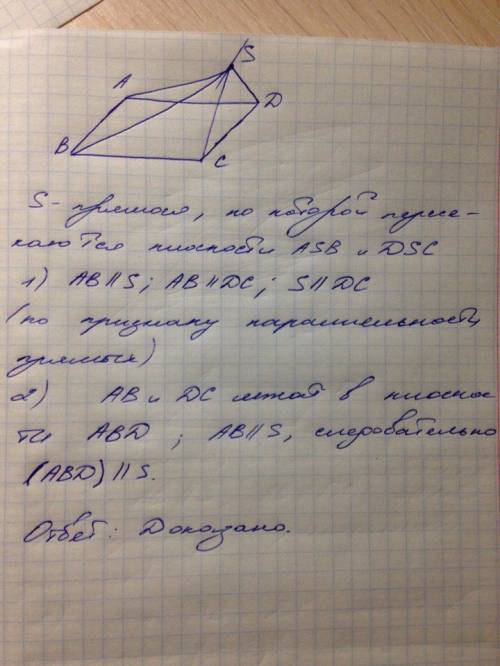 S
A
D
B
C
S - прямая, по которой пересе-
каются плоскости ASB и DSC
1) AB || S; AB || DC; S || DC
(по признаку параллельности
прямых)
2) AB и DC лежат в плоскос-
ти ABD; AB || S, следовательно
(ABD) || S.
Ответ: Доказано.